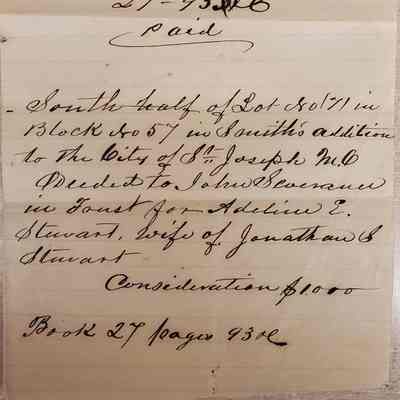 27-93
paid
- South half of Lot No (7) in
Block No 57 in Smith's addition
to the City of St Joseph M.O
Deeded to John Severance
in Trust for Adeline E.
Stewart, wife of Jonathan S
Stewart
Consideration $1000
Book 27 pages 93